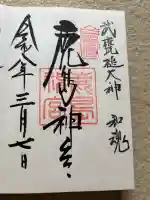 武甕槌大神 和魂
鹿島神宮
令八年三月七日